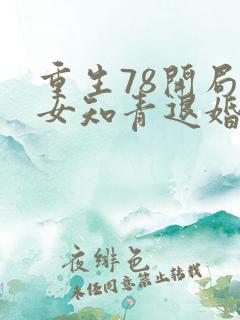 重生78开局
女知青退婚
夜绯色
未经同意禁止转载